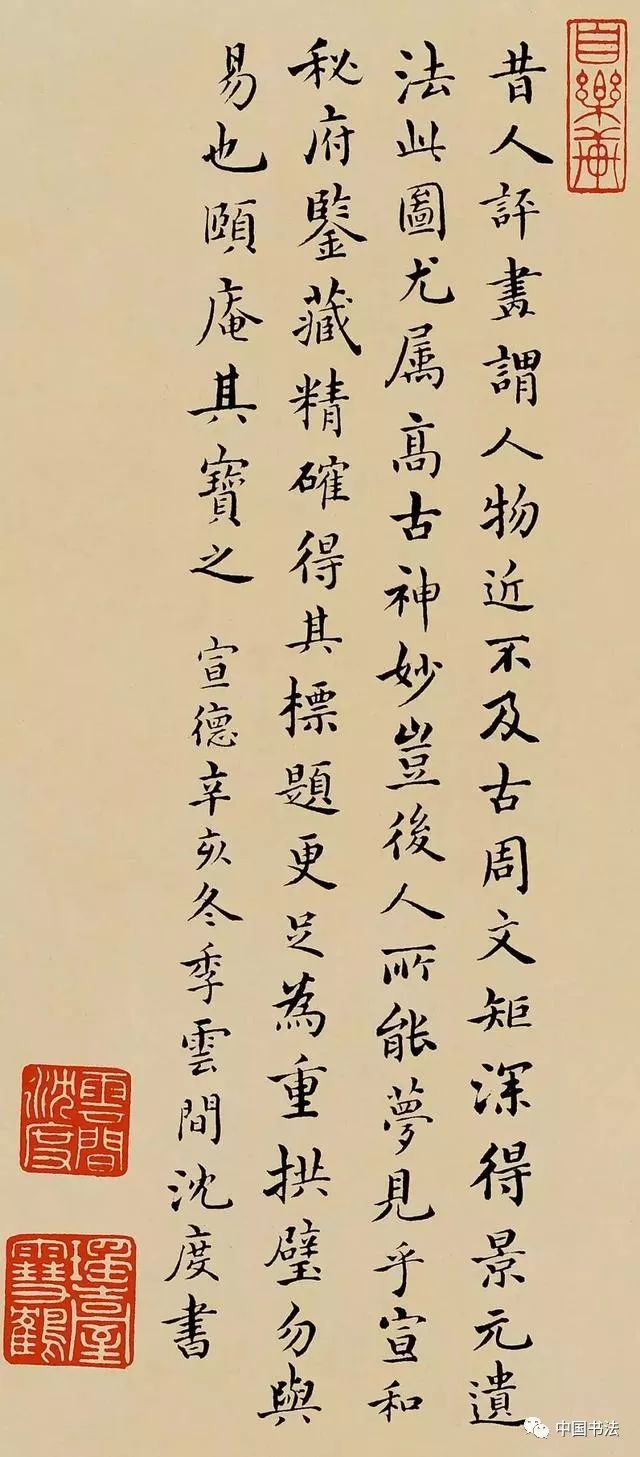 自樂菴
昔人評畫謂人物近不及古周文矩深得景元遺
法此圖尤属高古神妙豈後人所能夢見乎宣和
秘府鑒藏精確得其標題更足為重拱璧勿與
易也頤庵其寶之 宣德辛亥冬季雲間沈度書
雲間沈度
中国书法